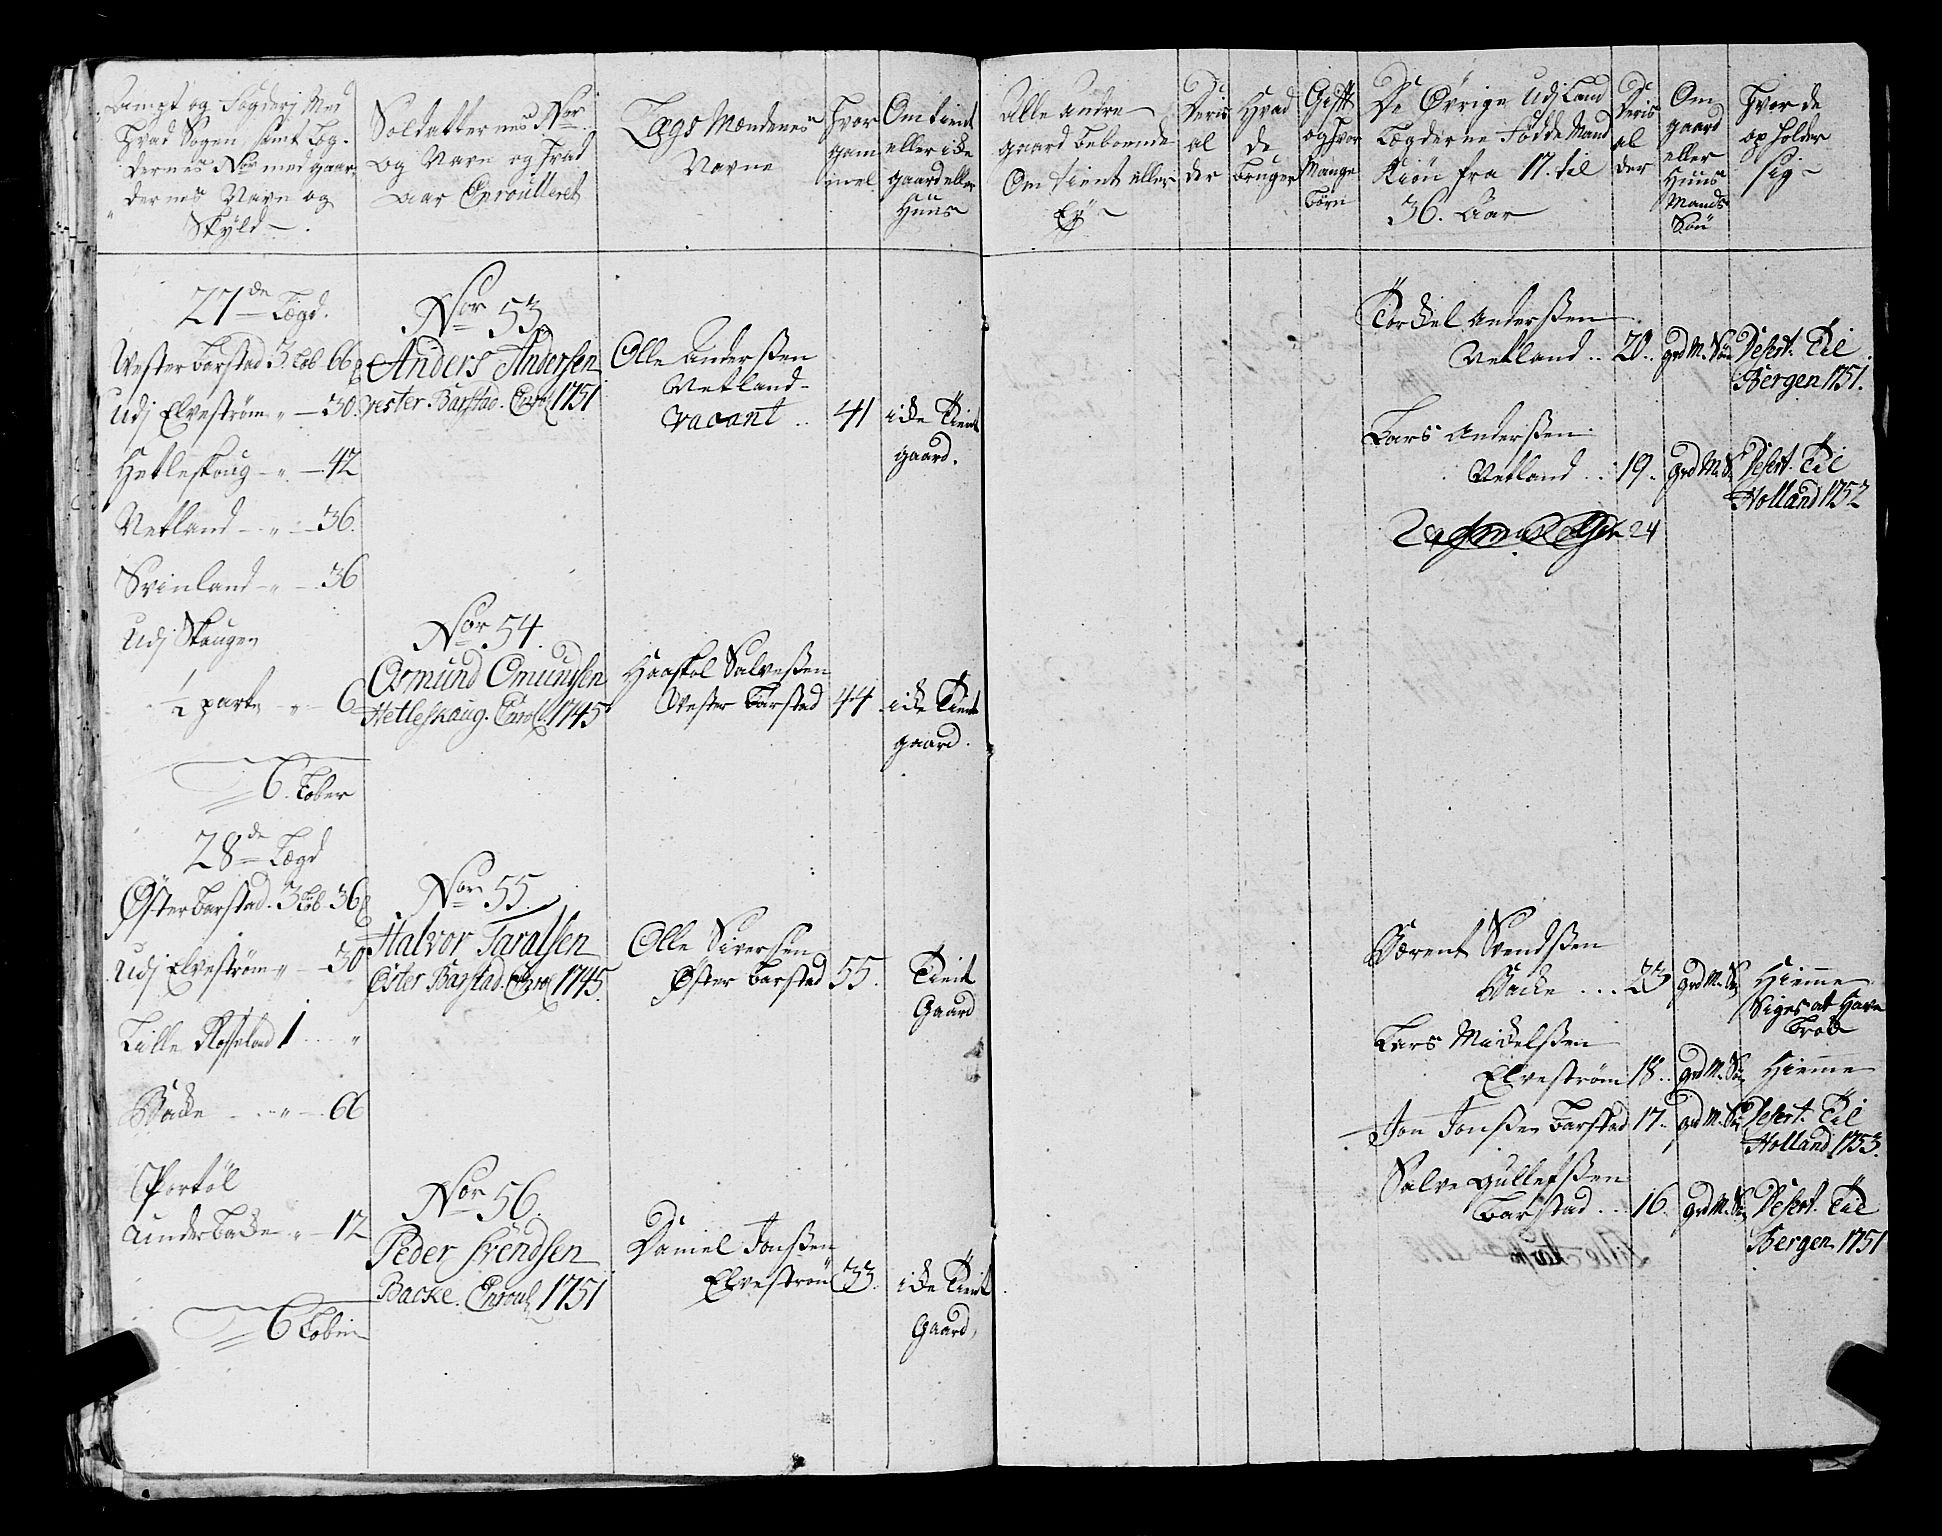 Ampt og Fogderj Med
Hvad Sogen samt Læg-
dernes No med gaar-
dernes Navn og
Skyld
Soldatternes Nor
og Navn og Hvad
Aar Enroulleret
Lægs Mændenes
Navne
Hvor
gam
mel
Om tient
eller icke
gaard eller
Huus
Alle Andre
gaard beboende
Om tient eller
Ey
Deris
al
der
Hvad
de
bruger
Gift
og Hvor
Mange
børn
De Øvrige Udj Land
Lægderne Fødde Mand
Kiøn fra 17. til
36. Aar
Deris
al
der
Om
gaard
eller
Huus
Mands
Søn
Hvor de
opholder
sig
27de Lægd.
Wester Barstad 3 Lob 66
Udj Elvestrøm " 30
Hetleskoug " 42
Netland " 36.
Svinland " 36
Udj Skaugen
1/2 parten " 6
6. Lober
Nor 53
Anders Andersen
vester. Barstad. Enrol 1751
Olle Anderßen
Netland
vacant .. 41 icke Tient
gaard.
Torckel Anderßen
Netland .. 20.. grd M. Søn Desert. Til
Bergen 1751.
Lars Anderßen
Netland .. 19. grd M. S. Desert. Til
Holland 1752
24
Nor 54.
Osmund Omundsen
Hetleskaug. Enrol 1745
Haaskol Salveßen
Wester Barstad 44 icke Tient
gaard.
28de Lægd
Øster Barstad. 3 Lob 36
Udj Elvestrøm " 30
Lille Rosseland 1 "
Backe " 66
Portøl
Aunderbacke " 12
6 Lober
Nor 55.
Halvor Taralsen
Øster Barstad. Enrol 1745.
Olle Siversen
Øster Barstad 55. Tient
Gaard
Bærent Svendßen
Backe ... 23 grd M. S. Hiemme
Siges at Have
Brok
Lars Mickelßen
Elvestrøm 18.. grd M. Søn Hiemme
Jon Jonßen Barstad 17.. grd M. S. Desert. Til
Holland 1753.
Salve Gullefßen
Barstad .. 16. grd M. S. Desert. Til
Bergen 1751
Nor 56.
Peder Svendsen
Backe. Enroul 1751
Daniel Jonßen
Elvestrøm 33. icke Tient
Gaard,